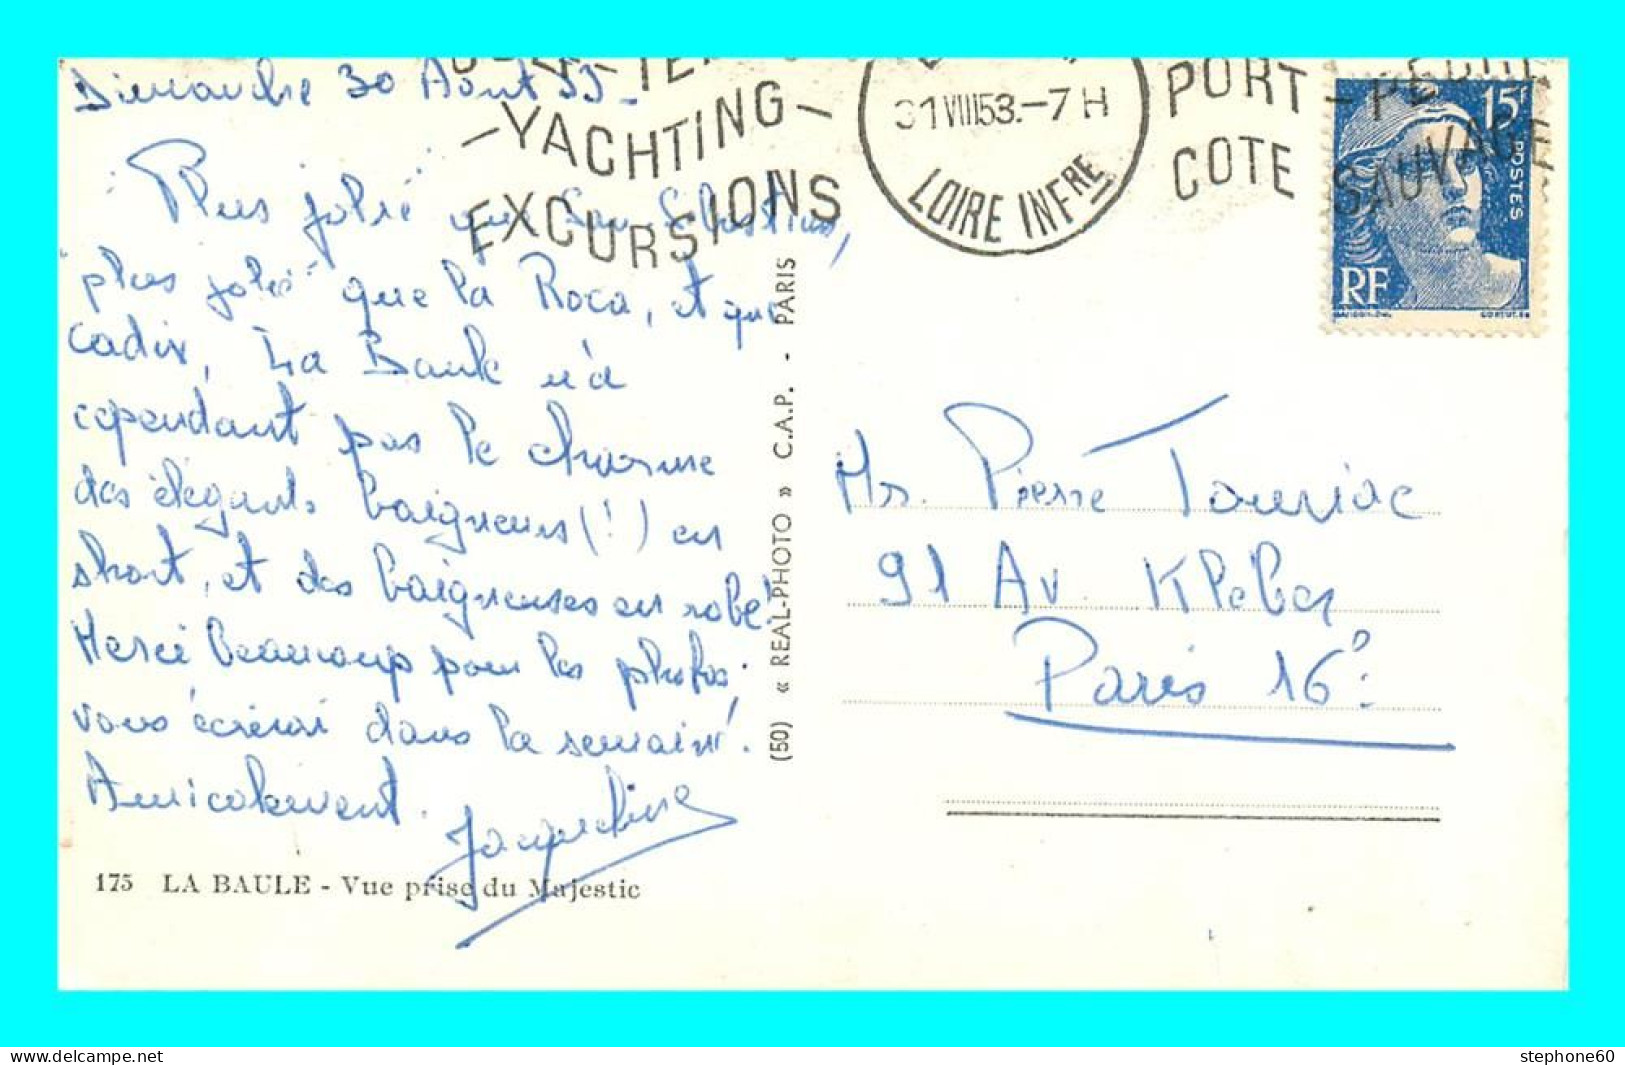 Dimanche 30 Août 53_
YACHTING
EXCURSIONS
31 VIII 53.-7 H
LOIRE INFRE
PORT - PECHE
COTE SAUVAGE
15F
POSTES
RF
"Plus jolie" que San Sebastian,
"plus jolie" que la Roca, et que
Cadix, La Baule n'a
cependant pas le charme
des élégants baigneurs (!) en
short, et des baigneuses en robe!
Merci beaucoup pour les photos;
vous écrirai dans la semaine.
Amicalement.
Jacqueline
175 LA BAULE - Vue prise du Majestic
(50) « REAL-PHOTO » C.A.P. - PARIS
Mr. Pierre Touriac
91 Av. Kleber
Paris 16e
www.delcampe.net
stephone60